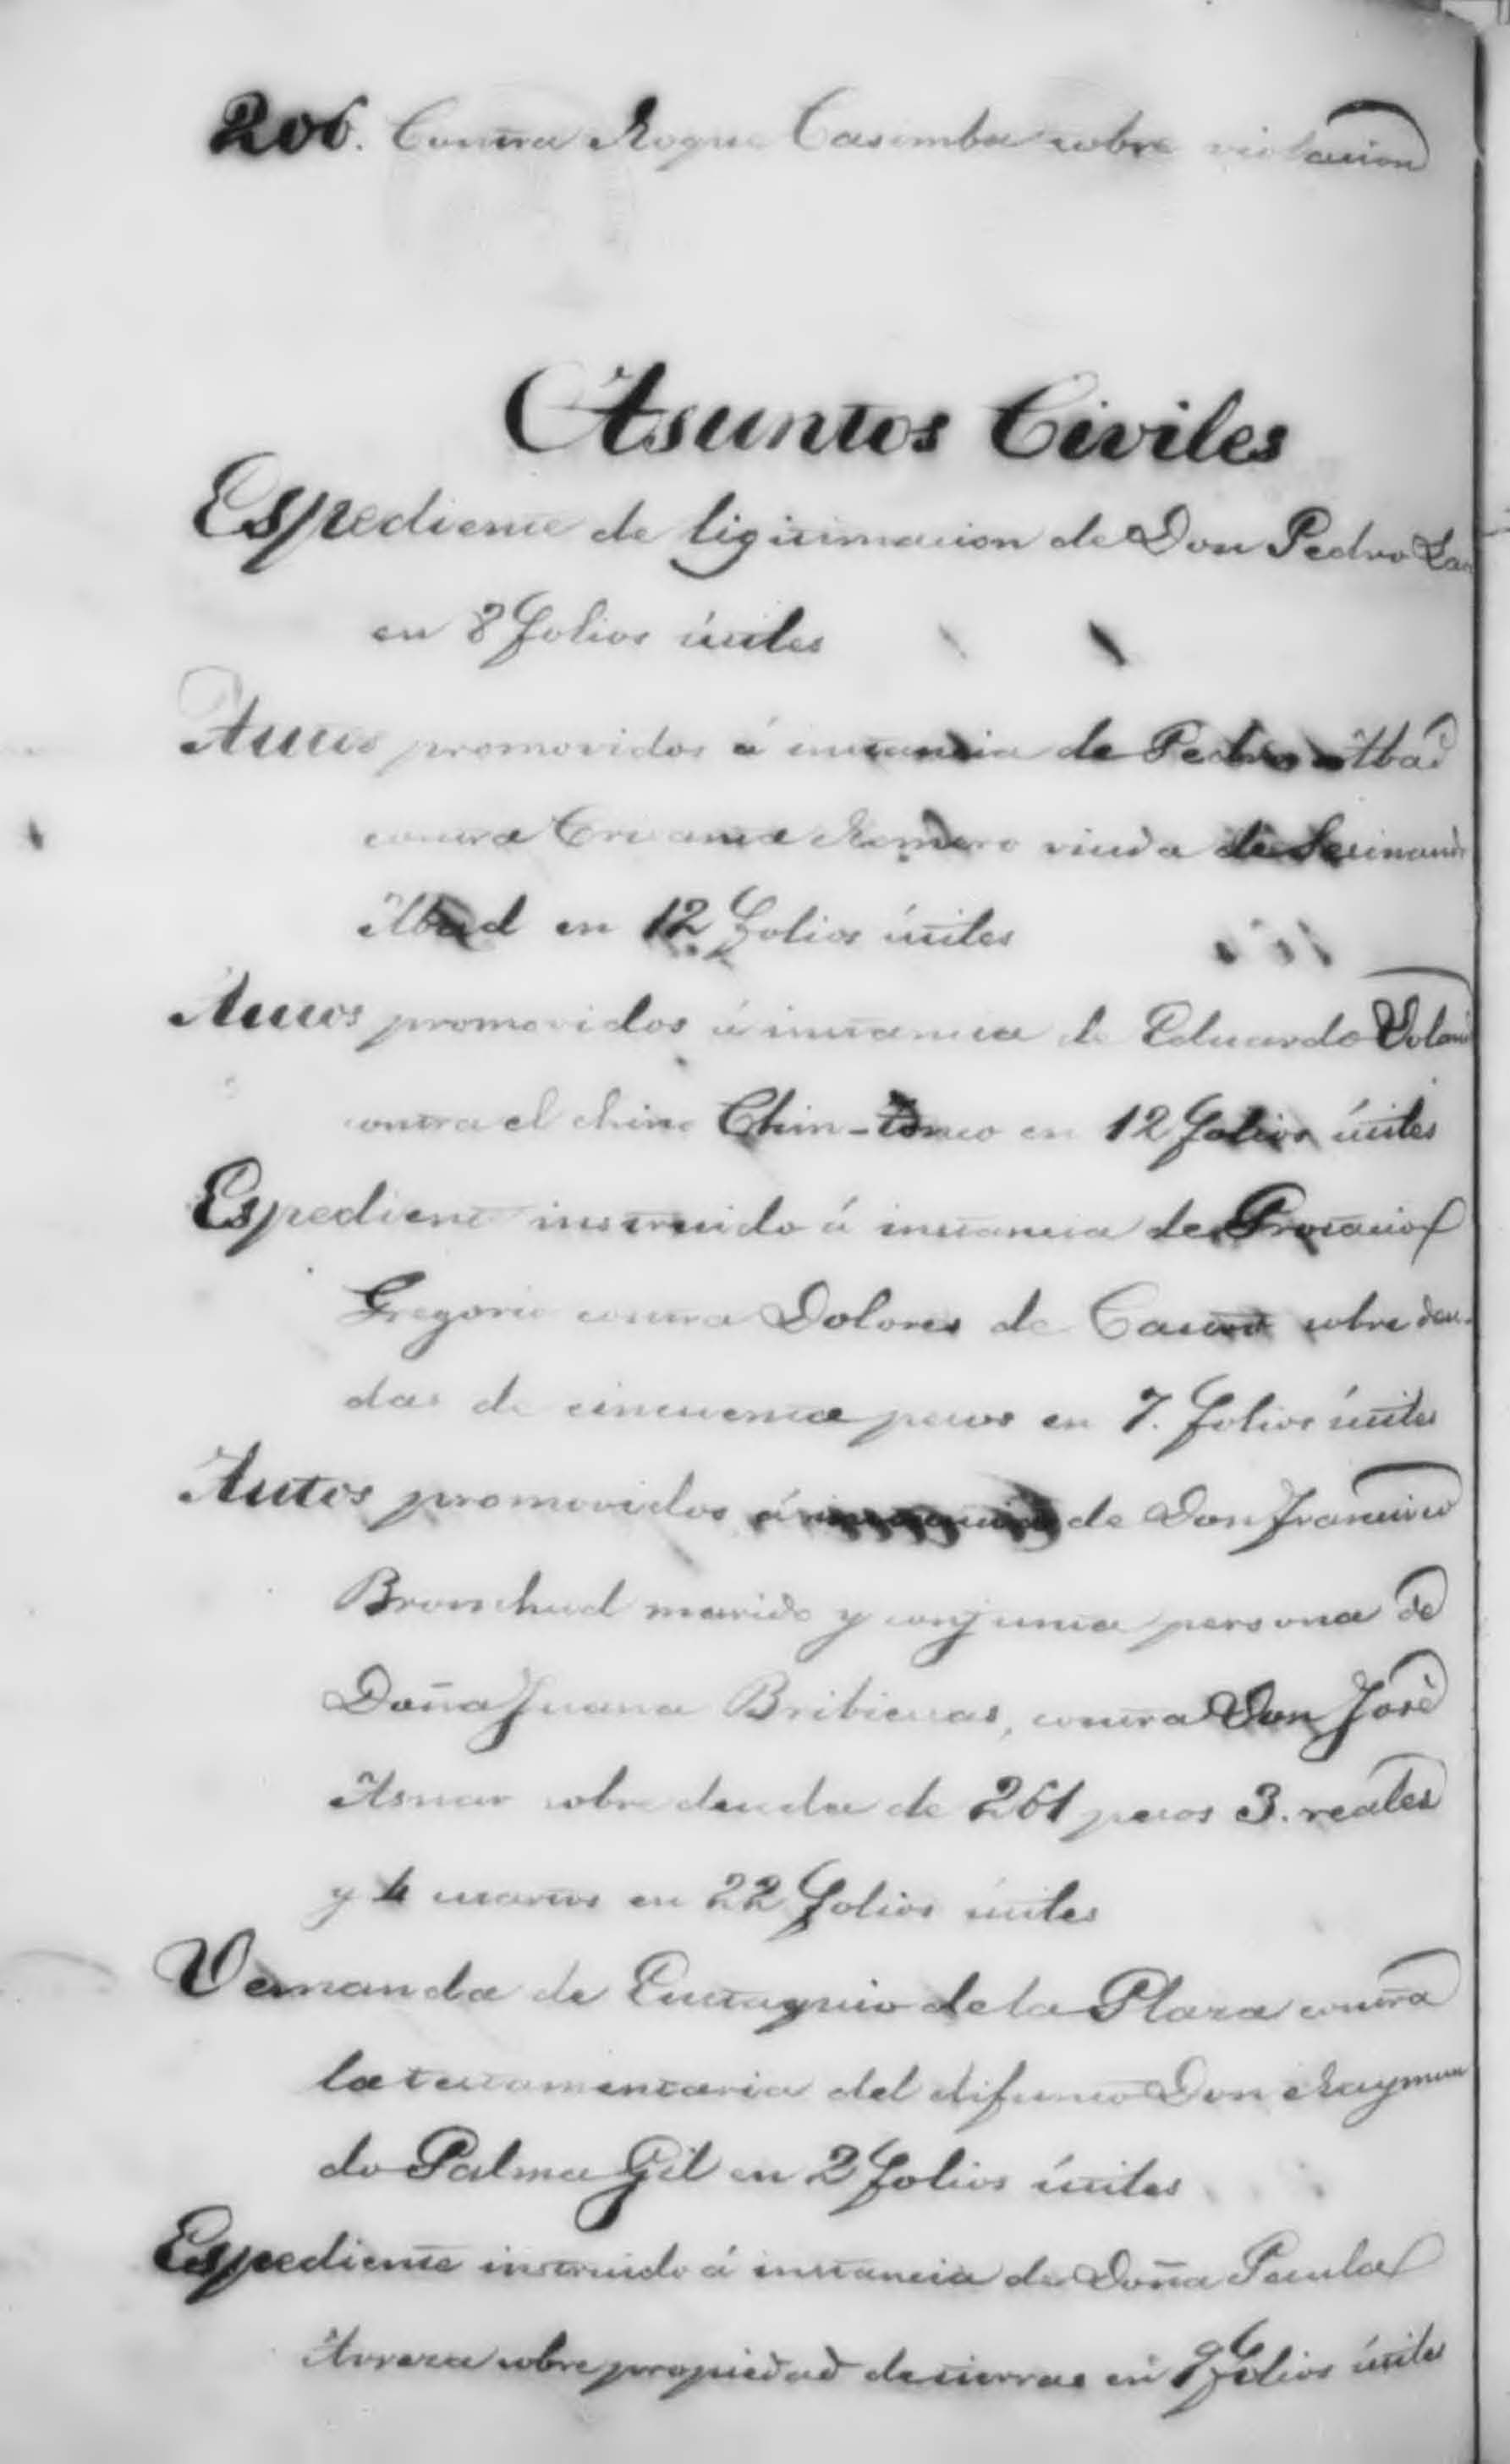 206. Contra Roque Casimba sobre violacion
Asuntos Civiles
Espediente de ligitimacion de Don Pedro
en 8 folios útiles
Autos promovidos á instancia de Pedro Abad
contra Romero viuda de
Abad en 12 folios útiles
Autos promovidos á instancia de Eduardo
contra el chino Chin-tonco en 12 folios útiles
Espediente instruido á instancia de Protacio
Gregorio contra Dolores de Castro sobre deu-
das de cincuenta pesos en 7. folios útiles
Autos promovidos á instancia de Don Francisco
Bronchud marido y conjunta persona de
Doña Juana contra Don José
Asnar sobre deuda de 261 pesos 3. reales
y 4 cuartos en 22 folios útiles
Demanda de Eustaquio de la Plaza contra
la testamentaria del difunto Don Raymun
do Palma Gil en 2 folios útiles
Espediente instruido á instancia de Doña Paula
sobre propiedad de tierras en 9 folios útiles